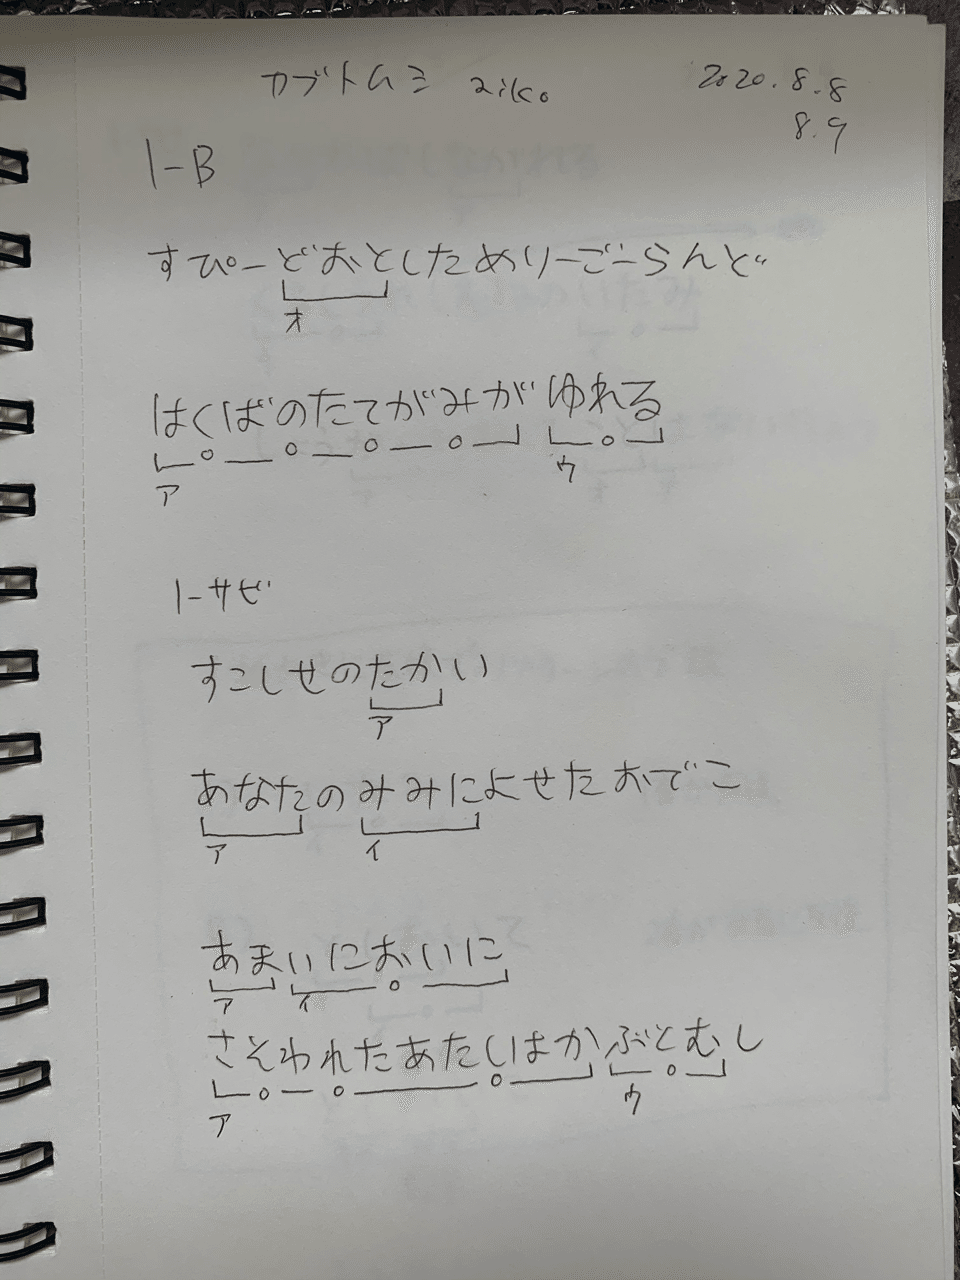 カブトムシ aiko 2020.8.8
8.9
1-B
すぴーどおとしためりーごーらんど
オ
はくばのたてがみが ゆれる
ア ウ
1-サビ
すこしせのたかい
ア
あなたのみみによせたおでこ
ア イ
あまいにおいに
ア イ
さそわれたあたしはかぶとむし
ア ウ